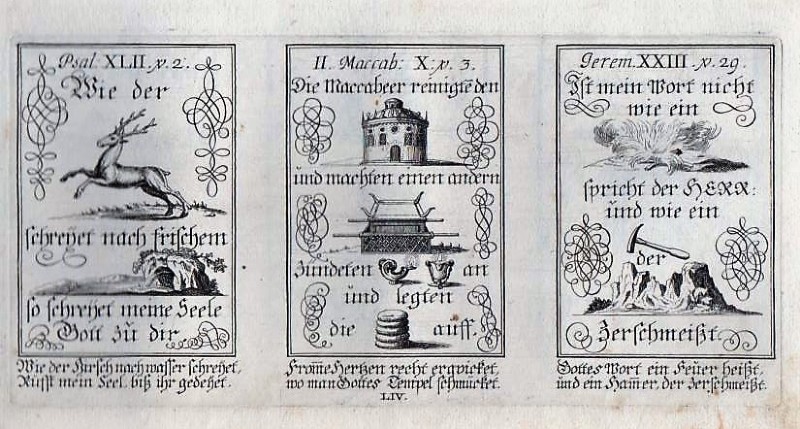 Psal. XLII. v. 2.
Wie der
schreÿet nach frischem
so schreÿet meine Seele
Gott zu dir
Wie der Hirsch nach wasser schreÿet,
Rufft mein Seel. biß ihr gedeÿet.
II. Maccab: X. v. 3.
Die Maccabeer reinigte den
und machten einen andern
Zündeten an
und legten
die auff.
From̅e Hertzen recht erquicket,
wo man Gottes Tempel schmücket.
LIV.
Jerem. XXIII. v. 29.
Ist mein Wort nicht
wie ein
spricht der HERR:
und wie ein
der
Zerschmeißt.
Gottes Wort ein Feüer heißt,
und ein Ham̅er, der Zerschmeißt.